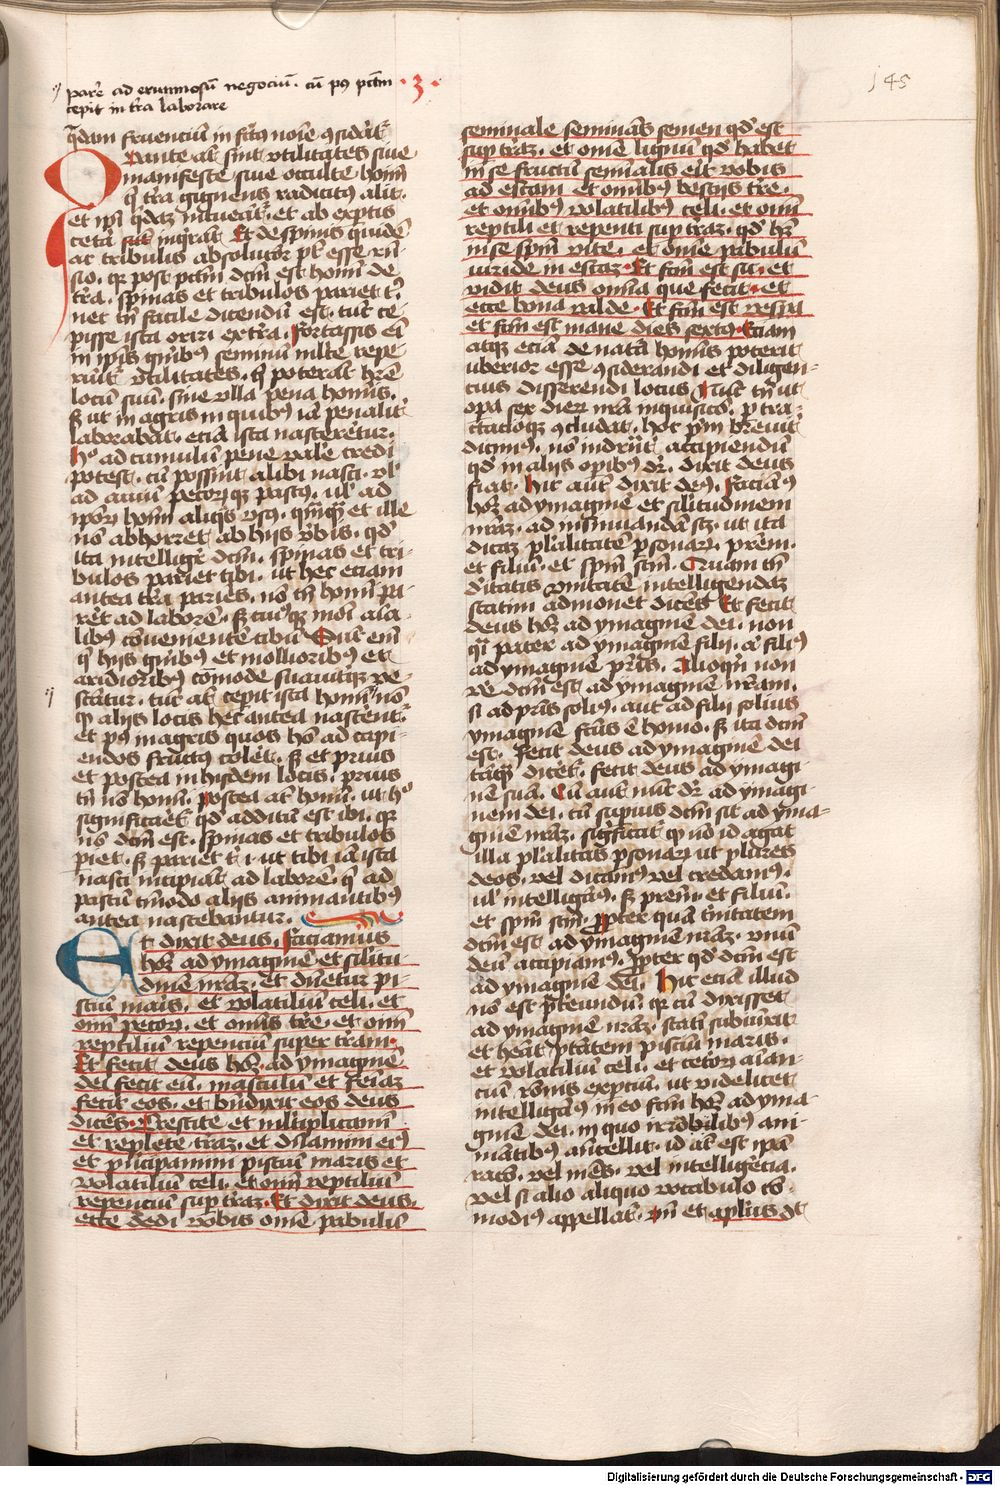 pare ad erumnosū negociū. cū pꝰ pctm̄ · 3 ·
cepit in tr̄a laborare
145
q̄dam fruenciū in fr̄ctꝰ noīe ɔsidāt
Quante at̄ sint vtilitates siue
manifeste siue occulte homī
q̄ tr̄a gignens radicitꝰ alit.
et ip̄i q̄daz intueāt. et ab exp̄tis
cetā inq̄rāt Et de spinis quidē
ac tribulis absolucior pt̄ esse rn̄
sio. qꝛ post pctm̄ dcm̄ est homī de
tr̄a. spinas et tribulos pariet tⁱ.
nec tn̄ facile dicendū est. tūc ce
pisse ista oriri ex tr̄a. Fortassis eī
in ip̄is q̄ibꝰ seminū ml̄te repe
riūt vtilitates. q̄ poterāt hr̄e
locū suū. sine vlla pena homīs.
ꝫ ut in agris in quibꝰ iā penalit̄
laborabāt. etiā ista nascerētur.
Hᵒ ad cumulū pene vale credi
potest. cū possint alibi nasci. vl̄
ad auiū pecorūqꝫ pastꝰ. vl̄ ad
ip̄oꝝ homī aliq̄s vsꝰ. q̄mq̄ et ille
nō abhorret ab hijs v̄bis. qd̄
ita intelligr̄ dcm̄. spinas et tri-
bulos pariet tibi. ut hec etiam
antea tr̄a pariēs. nō tn̄ homī pa
rēt ad laborē. ꝫ cuiꝰqꝫ modi aīa-
libꝰ conuenientē cibū Sūt enī
q̄ hijs gn̄ibꝰ et mollioribꝰ et
aridioribꝰ cōmode suauitqꝫ ve
scātur. tūc at̄ cepit ista homī nō
qꝫ alijs locis hec antea nascēnt̄
et pꝰ in agris quos hō ad capi-
endos fructꝰ colēt. ꝫ et prius
et postea in hijsdem locis. prius
tn̄ nō homī. postea at̄ homī. ut hᵒ
significāet qd̄ additū est ibi. qꝛ
nō dcm̄ est. spinas et tribulos
piet. ꝫ pariet t i. ut tibi iā ista
nasci incipiāt ad laborē. q̄ ad
pastū tm̄odo alijs animantibꝰ
antea nascebantur.
Et dixit deus. faciamus
hoīz ad ymaginē et silitu
dinē nr̄az. et dn̄etur pi-
sciū maīs. et volatiliū celi. et
om̄i pecori. et om̄is tr̄e. et om̄i
reptiliū repenciū super tr̄am.
Et fecit deus hoīz. ad ymaginē
dei fecit eū. masculū et feīaz
fecit eos. et bn̄dixit eos deus
dicēs. Crescite et ml̄tiplicamī
et replete tr̄az. et dn̄amini eiꝰ
et pn̄cipamini pisciū maris et
volatiliū celi. et om̄i reptiliū
repenciū sup tr̄az. Et dixit deus.
ecce dedi vobis om̄e pabulū
seminale seminās semen qd̄ est
sup tr̄az. et om̄e lignū qd̄ habet
in se fructū semīalis erit vobis
ad escam et om̄ibꝰ bestijs tr̄e.
et om̄ibꝰ volatilibꝰ celi. et om̄i
reptili et repenti sup tr̄az. qd̄ hꝫ
in se spm̄ vite. et om̄e pabulū
viride in escaz. Et fcm̄ est sic. et
vidit deus om̄ia que fecit. et
ecce bona valde. Et fcm̄ est vespa
et fcm̄ est mane dies sextꝰ. Etiam
atqꝫ etiā de natā homīs poterit
vberior esse ɔsiderandi et diligen-
cius disserendi locus Nūc tn̄ ut
opa sex dierꝝ nr̄a inquisicō. p tra-
ctacioqꝫ ɔcludat. hoc pm̄ breuit̄
dicimꝰ. nō indr̄nt̄ accipiendū
qd̄ in alijs opibꝰ dr̄. dixit deus
fiat. hic aut̄ dixit deꝰ. faciāꝰ
hoīz ad ymaginē et silitudinem
nr̄az. ad insinuandā scꝫ. ut ita
dicaz pl̄alitatē psonarꝝ. prēm.
et filiū. et spm̄ scm̄. Quam tn̄
dītatis vnitatē intelligendaz
statim admonet dicēs Et fecit
deus hoīz ad ymaginē dei. non
q̄i pater ad ymaginē filij. āt filiꝰ
ad ymaginē pr̄is. Alioqn̄ non
ve dcm̄ est ad ymaginē nr̄am.
si ad pr̄is soliꝰ. aut ad filij solius
ymaginē fcūs ē homo. ꝫ ita dcm̄
est. fecit deus ad ymaginē dei
tāq̄ dicēt. fecit deus ad ymagi
nē suā. Cū aut̄ nūc dr̄ ad ymagi
nem dei. cū superius dcm̄ sit ad yma-
ginē nr̄az. significat̄ qꝫ nō id agat
illa pl̄alitas psonarꝝ ut plures
deos. vel dicamꝰ vel credamꝰ.
vl̄ intelligāꝰ. ꝫ prēm. et filiū.
et spm̄ scm̄. ꝓpter quā t̄nitatem
dcm̄ est ad ymaginē nr̄az. vnū
deū accipiamꝰ. ꝓpter qd̄ dcm̄ est
ad ymaginē dei. Hic etiā illud
nō est pr̄tereundū qꝛ cū dixisset
ad ymaginē nr̄az. statī subiūxit
et heāt ptātem pisciū maris.
et volatiliū celi. et cetoꝝ aīan-
ciū rōnis expciū. ut videlicet
intelligāꝰ in eo fcm̄ hoīz ad yma-
ginē dei. in quo irrōbilibꝰ ani-
mātibꝰ an̄cellit. id at̄ est ip̄a
racō. vel mēs. vel intelligēcia.
vel si alio aliquo vocabulo cō-
modiꝰ appellat̄. vn̄ et aplūs dt̄
Digitalisierung gefördert durch die Deutsche Forschungsgemeinschaft - DFG